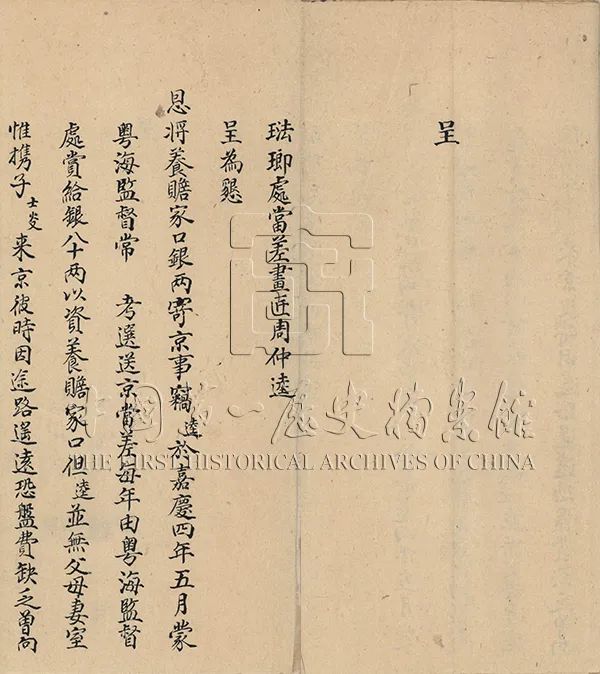 呈
琺瑯處當差畫匠周仲逵
呈為懇
恩將養贍家口銀两寄京事竊逵於嘉慶四年五月蒙
粤海監督常 考選送京當差每年由粤海監督
處賞給銀八十两以資養贍家口但逵並無父母妻室
惟攜子士炎来京彼時因途路遥遠恐盤費缺乏曾向
中国第一歷史檔案館
THE FIRST HISTORICAL ARCHIVES OF CHINA